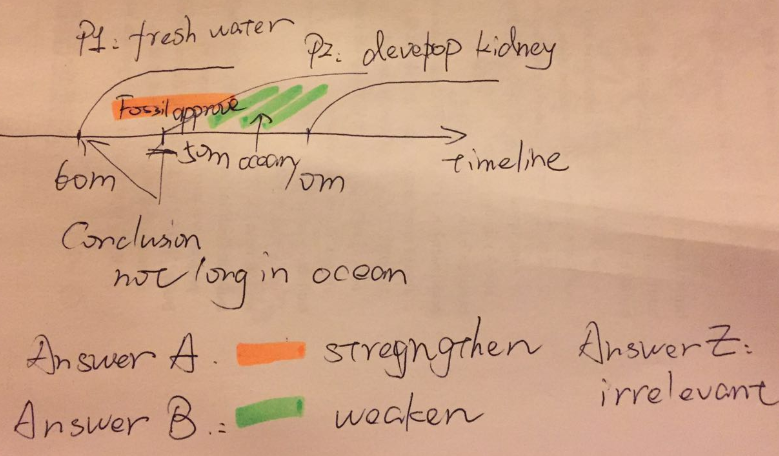 P1: fresh water
P2: devepop kidney
Fossil approve
60m
50m
ocean
10m
timeline
Conclusion
not long in ocean
Answer A. stregngthen
Answer B.: weaken
Answer Z:
irrelevant